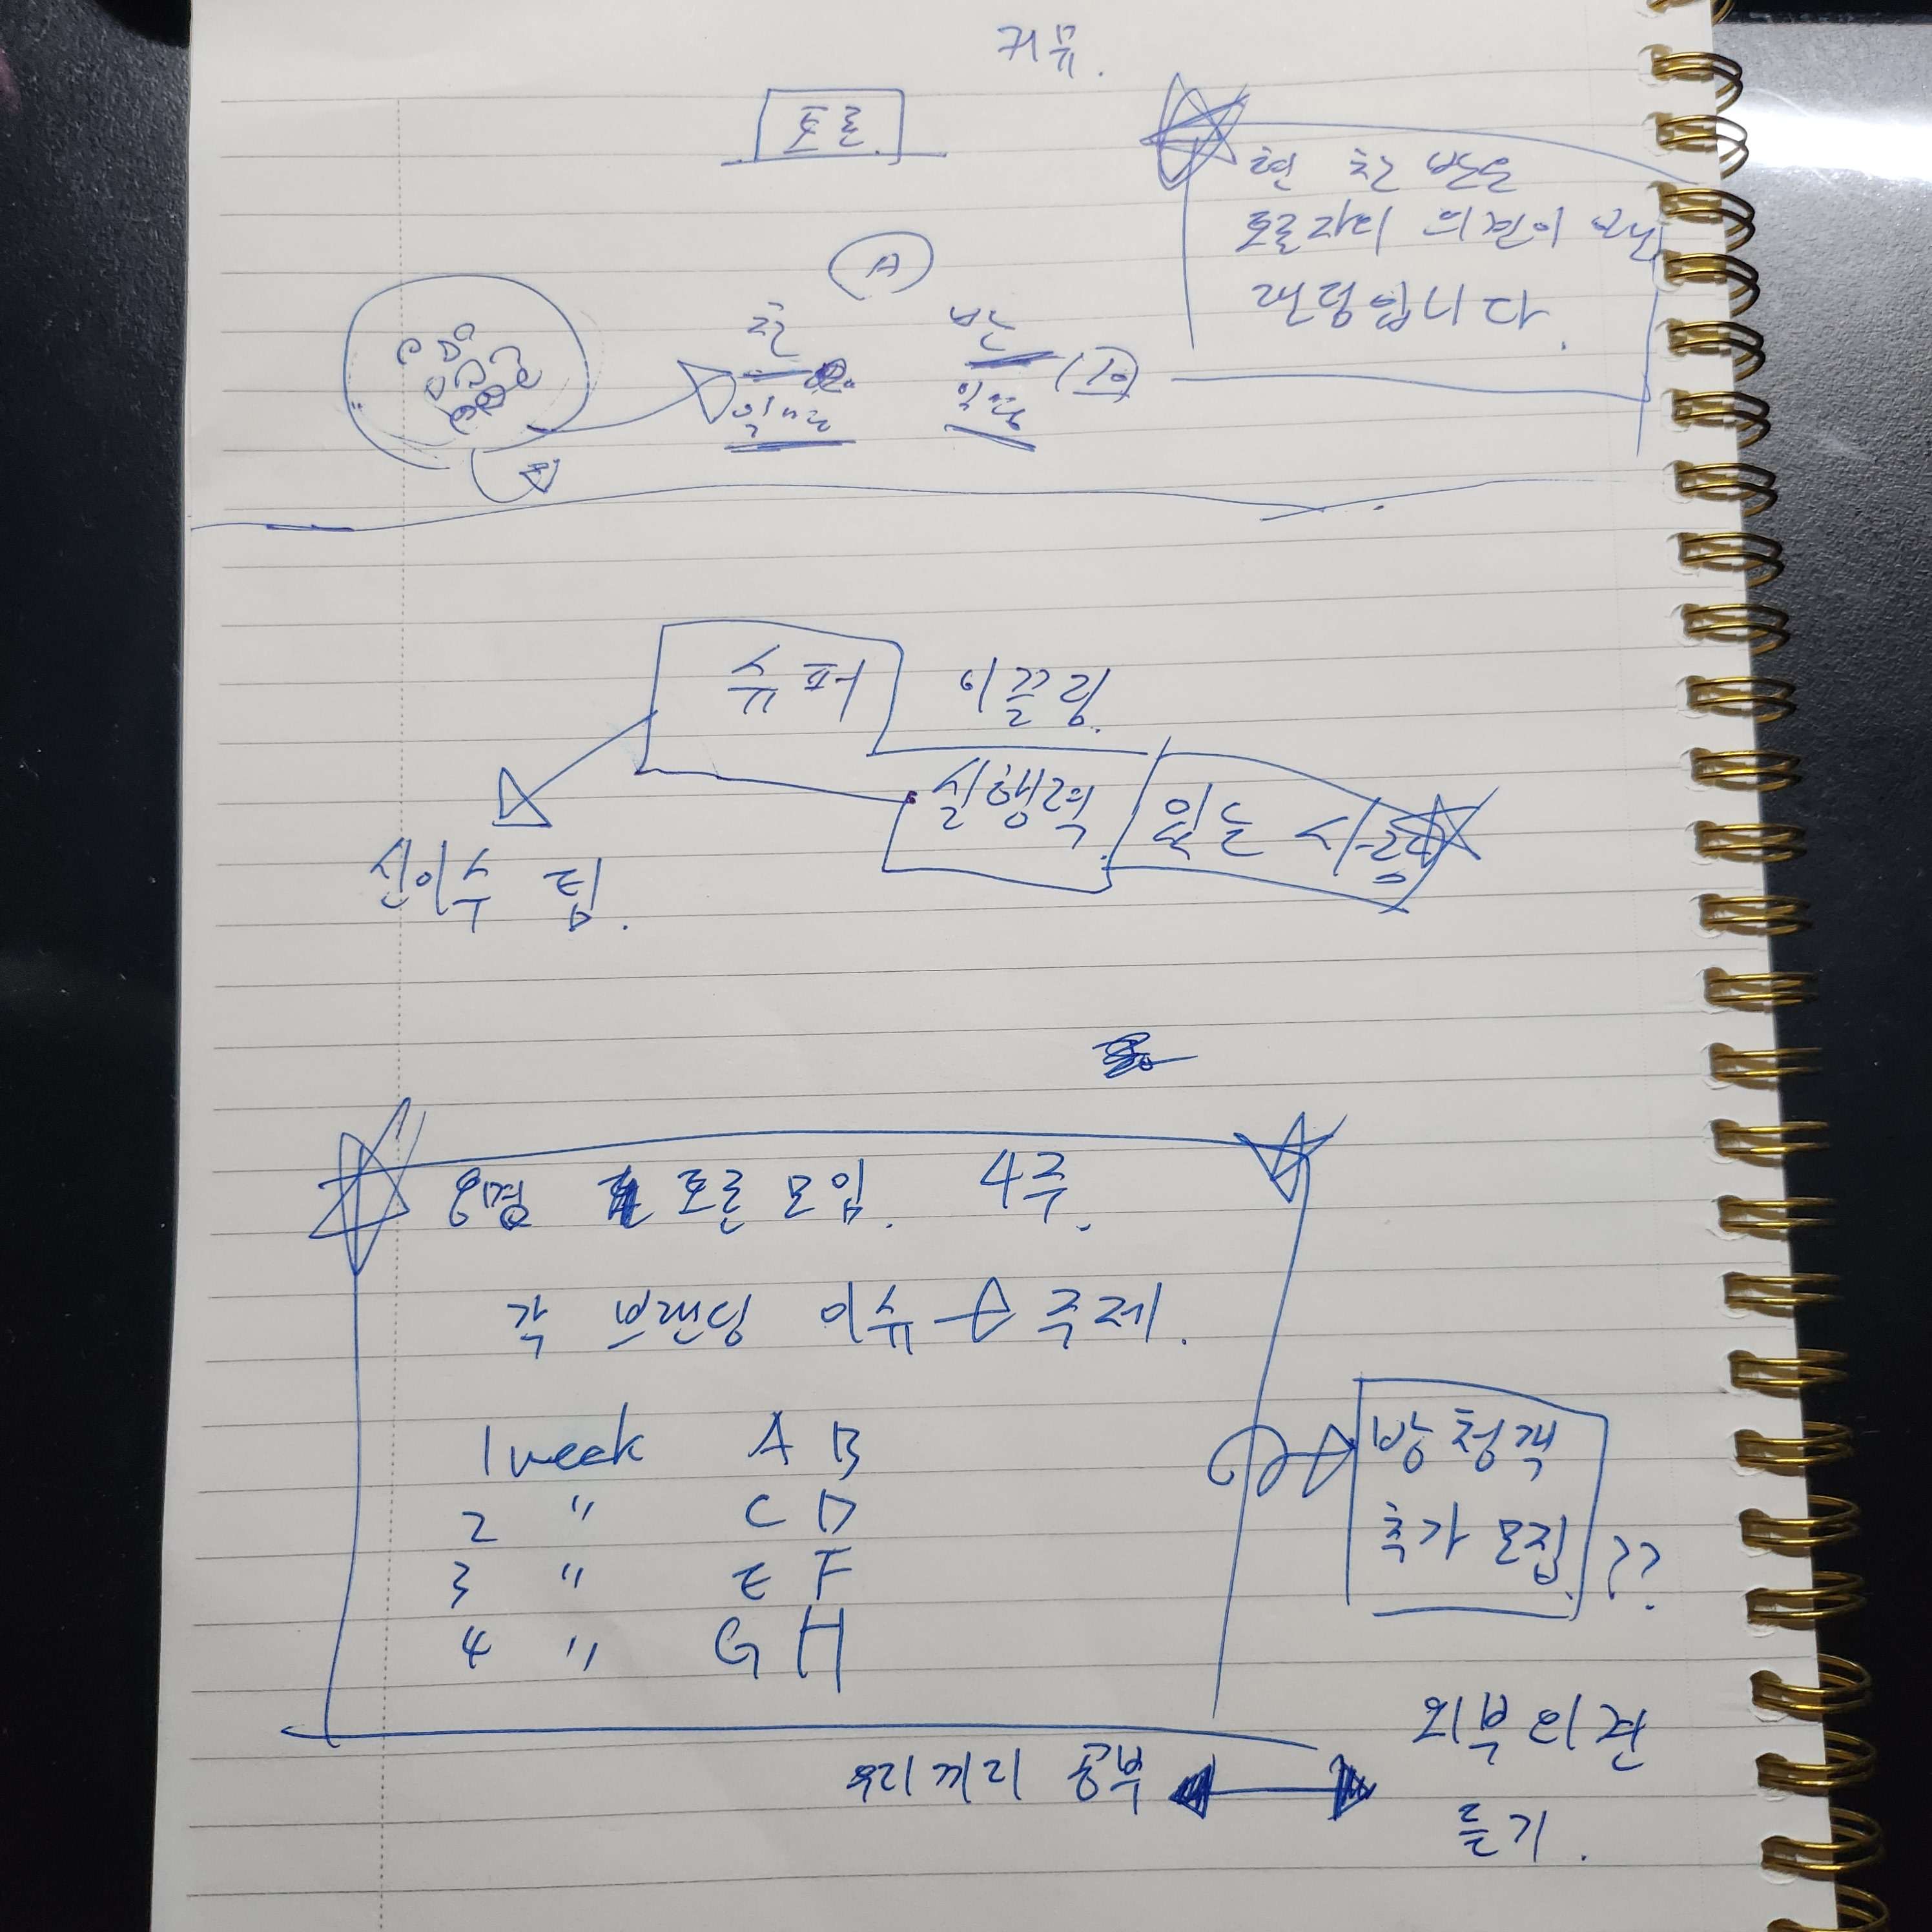 커뮤.
토론
현 찬 반은
토론자의 의견이 아닌
랜덤입니다.
A
찬 반
슈퍼 이끌림.
실행력 있는 사람
신이수 팁.
8명 토론 모임. 4주.
각 브랜딩 이슈 → 주제.
1 week A B
2 〃 C D
3 〃 E F
4 〃 G H
방청객
추가 모집. ??
우리끼리 공부 ↔ 외부 의견
듣기.